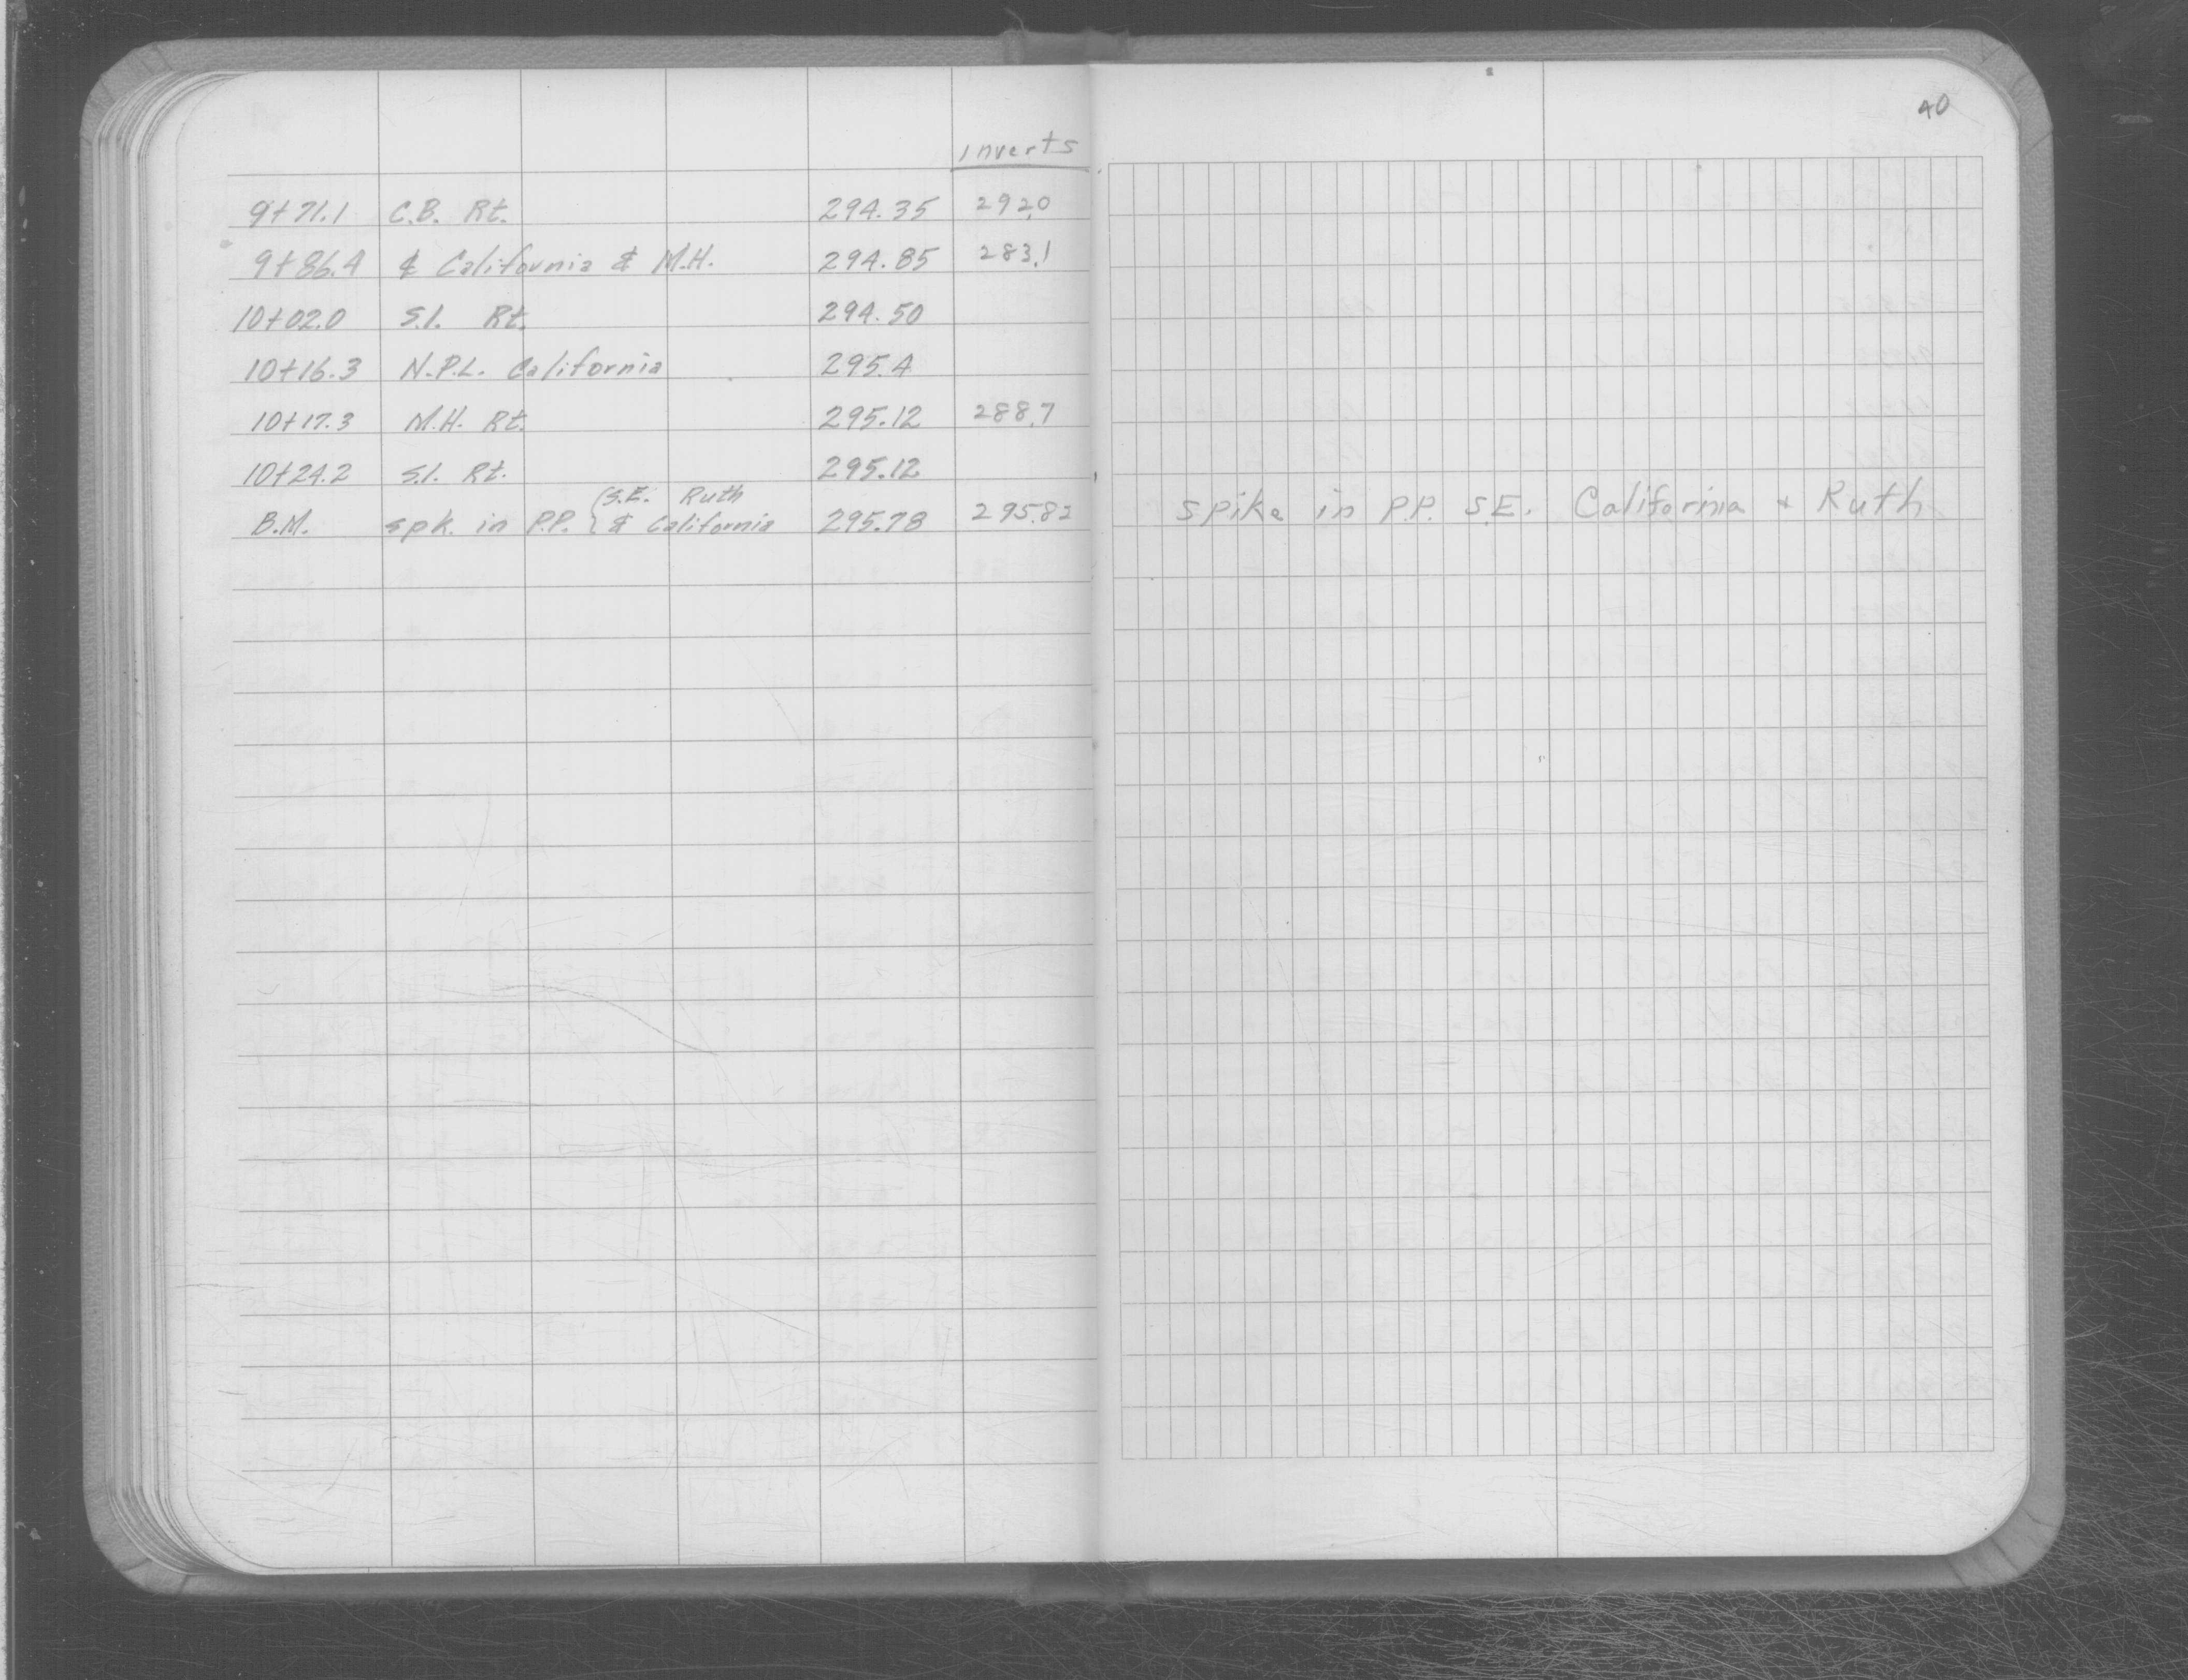 40
Inverts
9+71.1 C.B. Rt. 294.35 292.0
9+86.4 ₵ California & M.H. 294.85 283.1
10+02.0 S.I. Rt. 294.50
10+16.3 N.P.L. California 295.4
10+17.3 M.H. Rt. 295.12 288.7
10+24.2 S.I. Rt. 295.12
(S.E. Ruth
B.M. spk. in P.P. & California 295.78 295.82
spike in P.P. S.E. California & Ruth